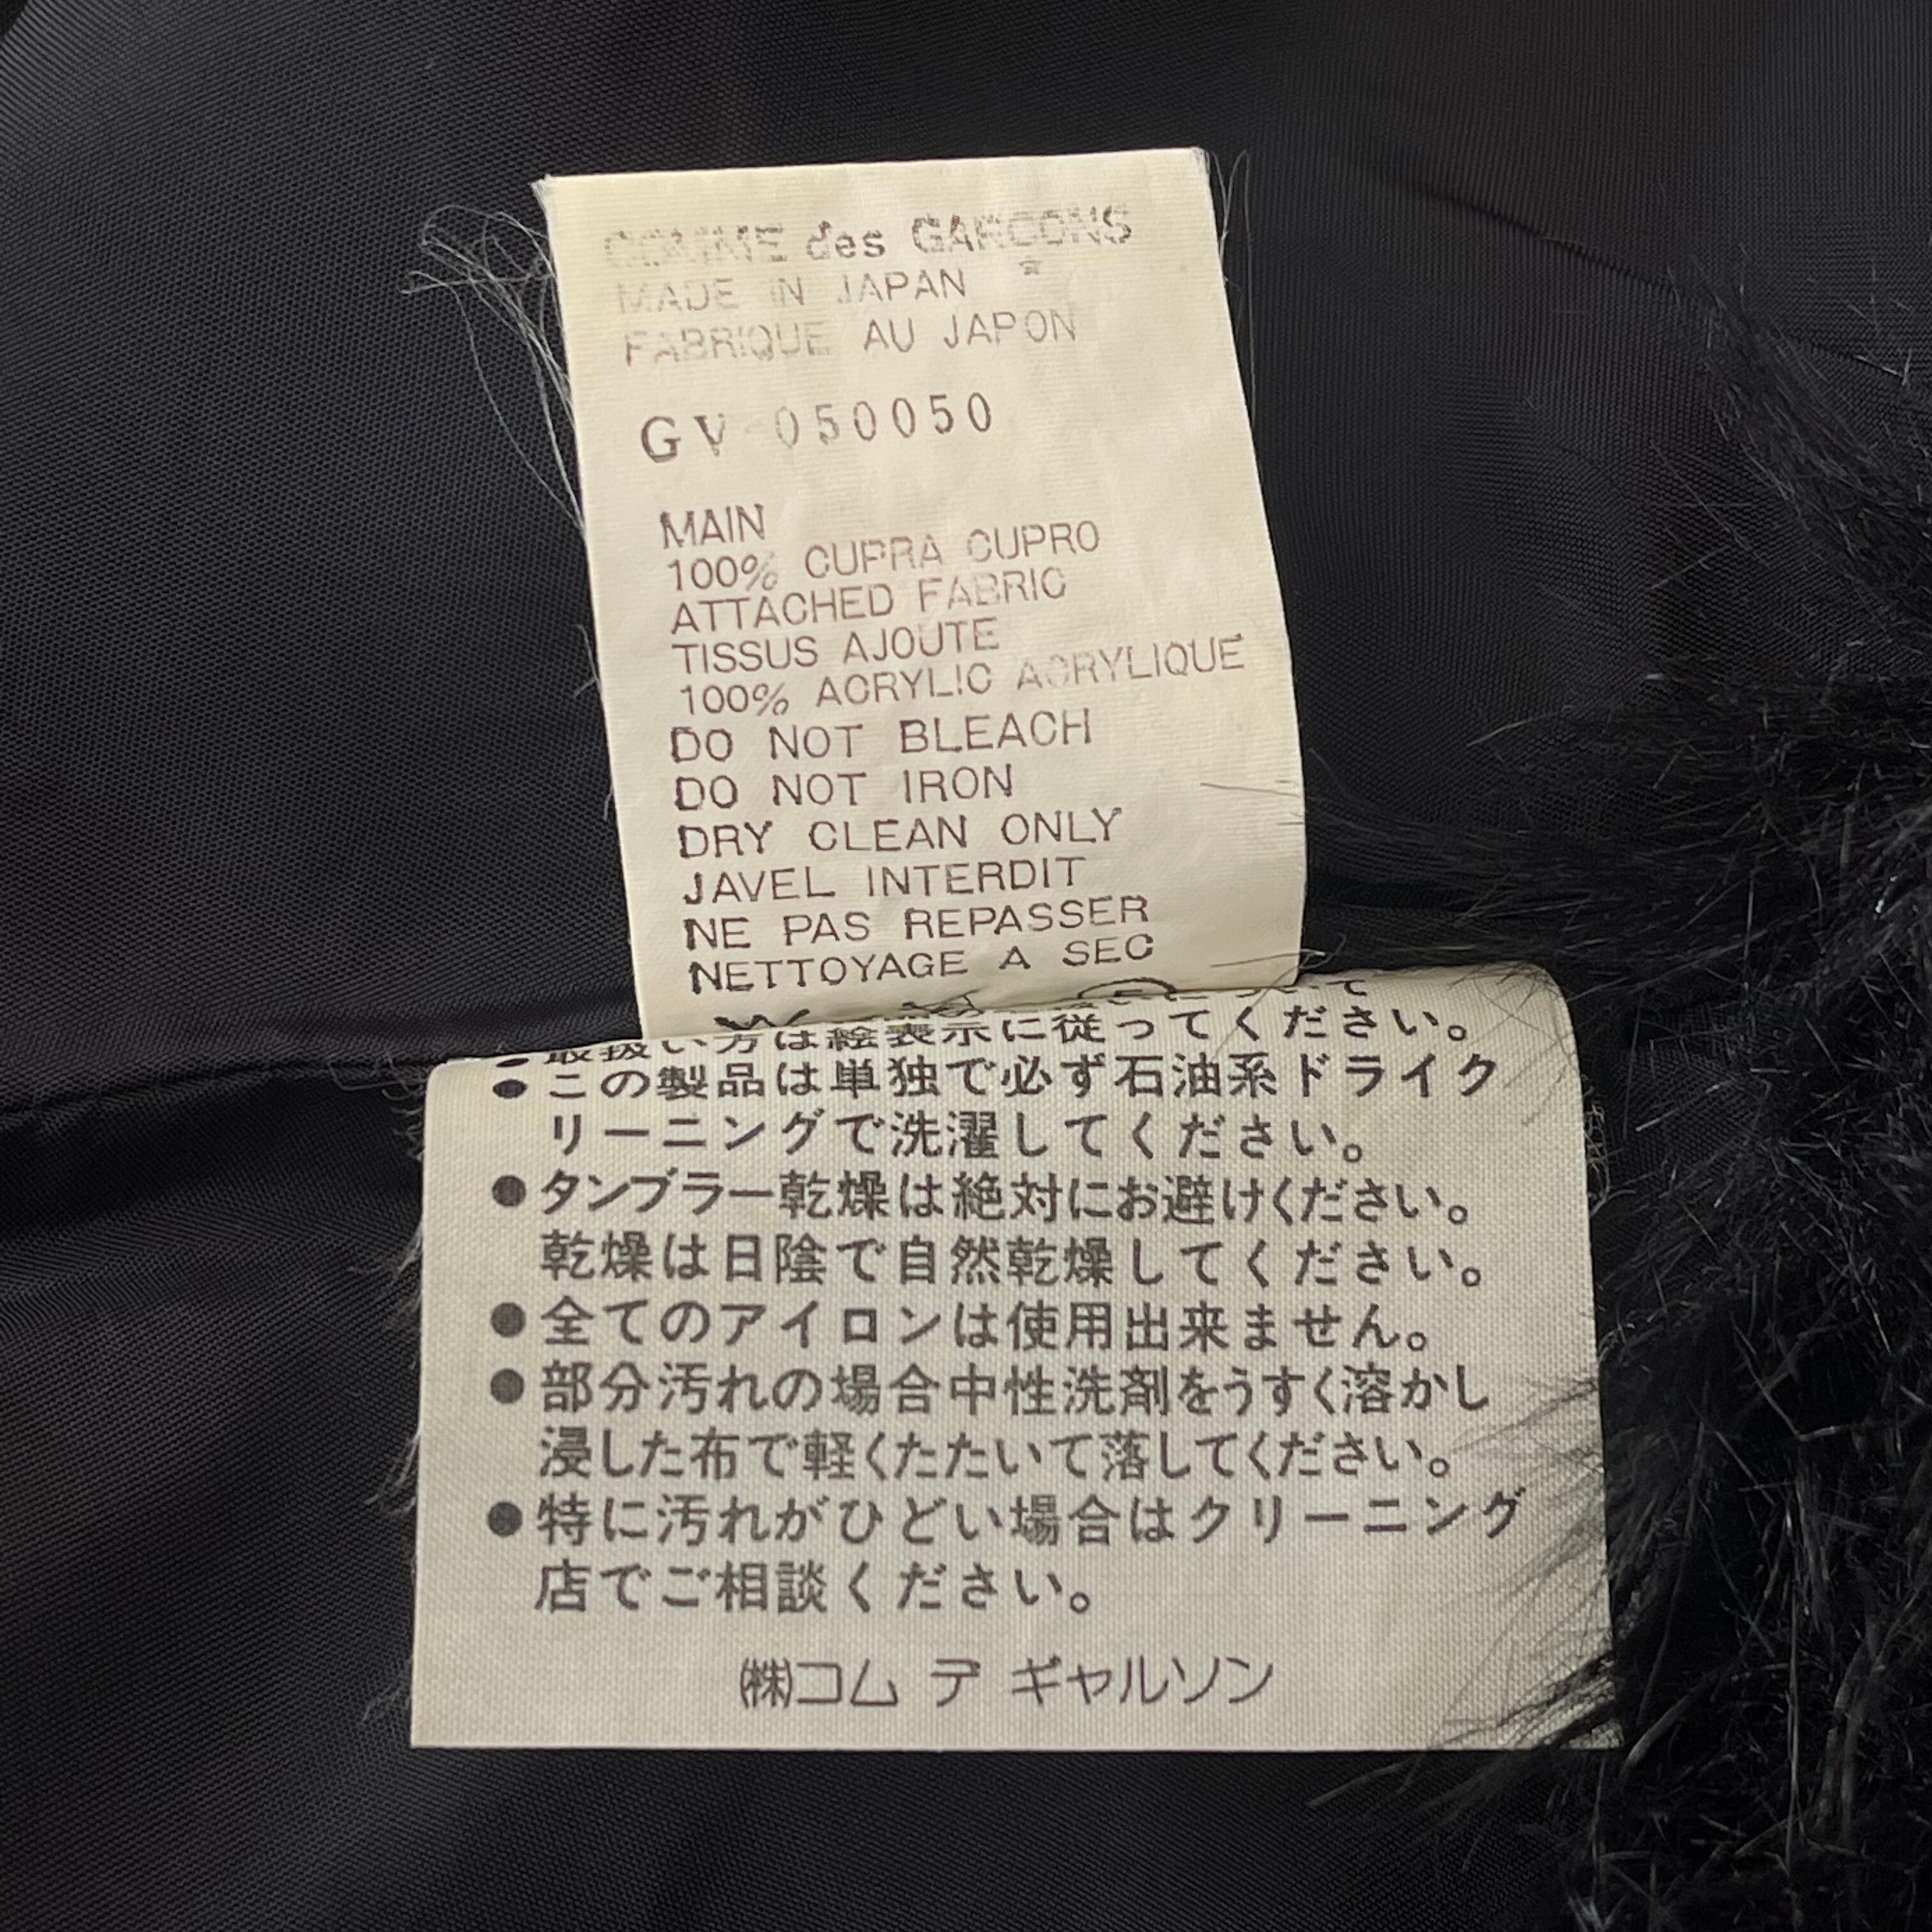 COMME des GARCONS
MADE IN JAPAN
FABRIQUE AU JAPON
GV-050050
MAIN
100% CUPRA CUPRO
ATTACHED FABRIC
TISSUS AJOUTE
100% ACRYLIC ACRYLIQUE
DO NOT BLEACH
DO NOT IRON
DRY CLEAN ONLY
JAVEL INTERDIT
NE PAS REPASSER
NETTOYAGE A SEC
について
●取扱い方は絵表示に従ってください。
●この製品は単独で必ず石油系ドライク
リーニングで洗濯してください。
●タンブラー乾燥は絶対にお避けください。
乾燥は日陰で自然乾燥してください。
●全てのアイロンは使用出来ません。
●部分汚れの場合中性洗剤をうすく溶かし
浸した布で軽くたたいて落してください。
●特に汚れがひどい場合はクリーニング
店でご相談ください。
㈱コム デ ギャルソン